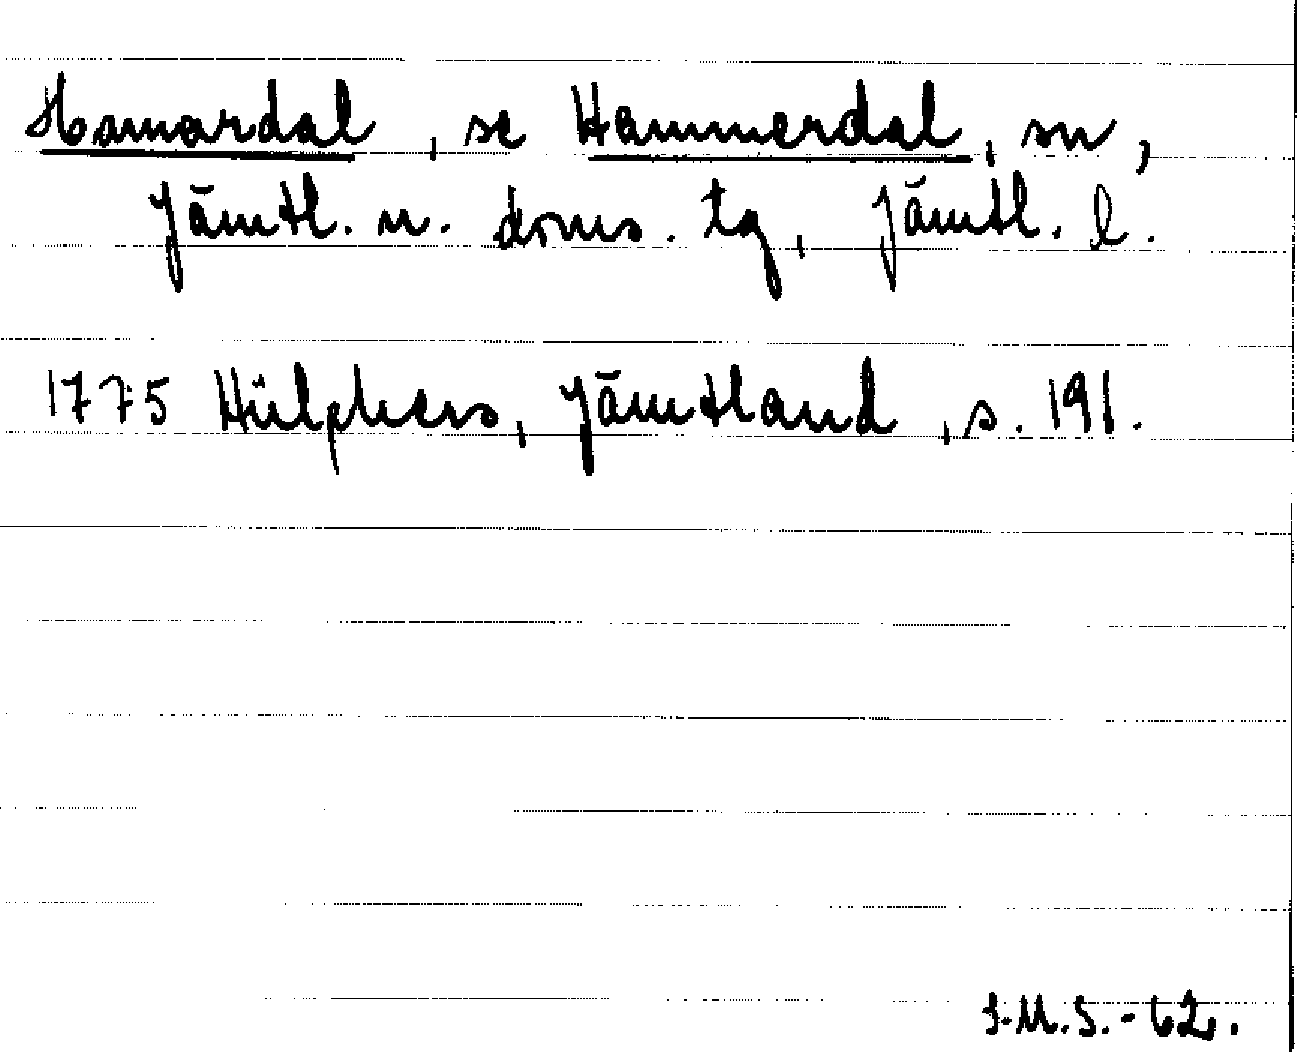 Hamardal, se Hammerdal, sn,
Jämtl. n. doms. tg, Jämtl. l.
1775 Hülphers, Jämtland, s. 191.
I.M.S.-62.